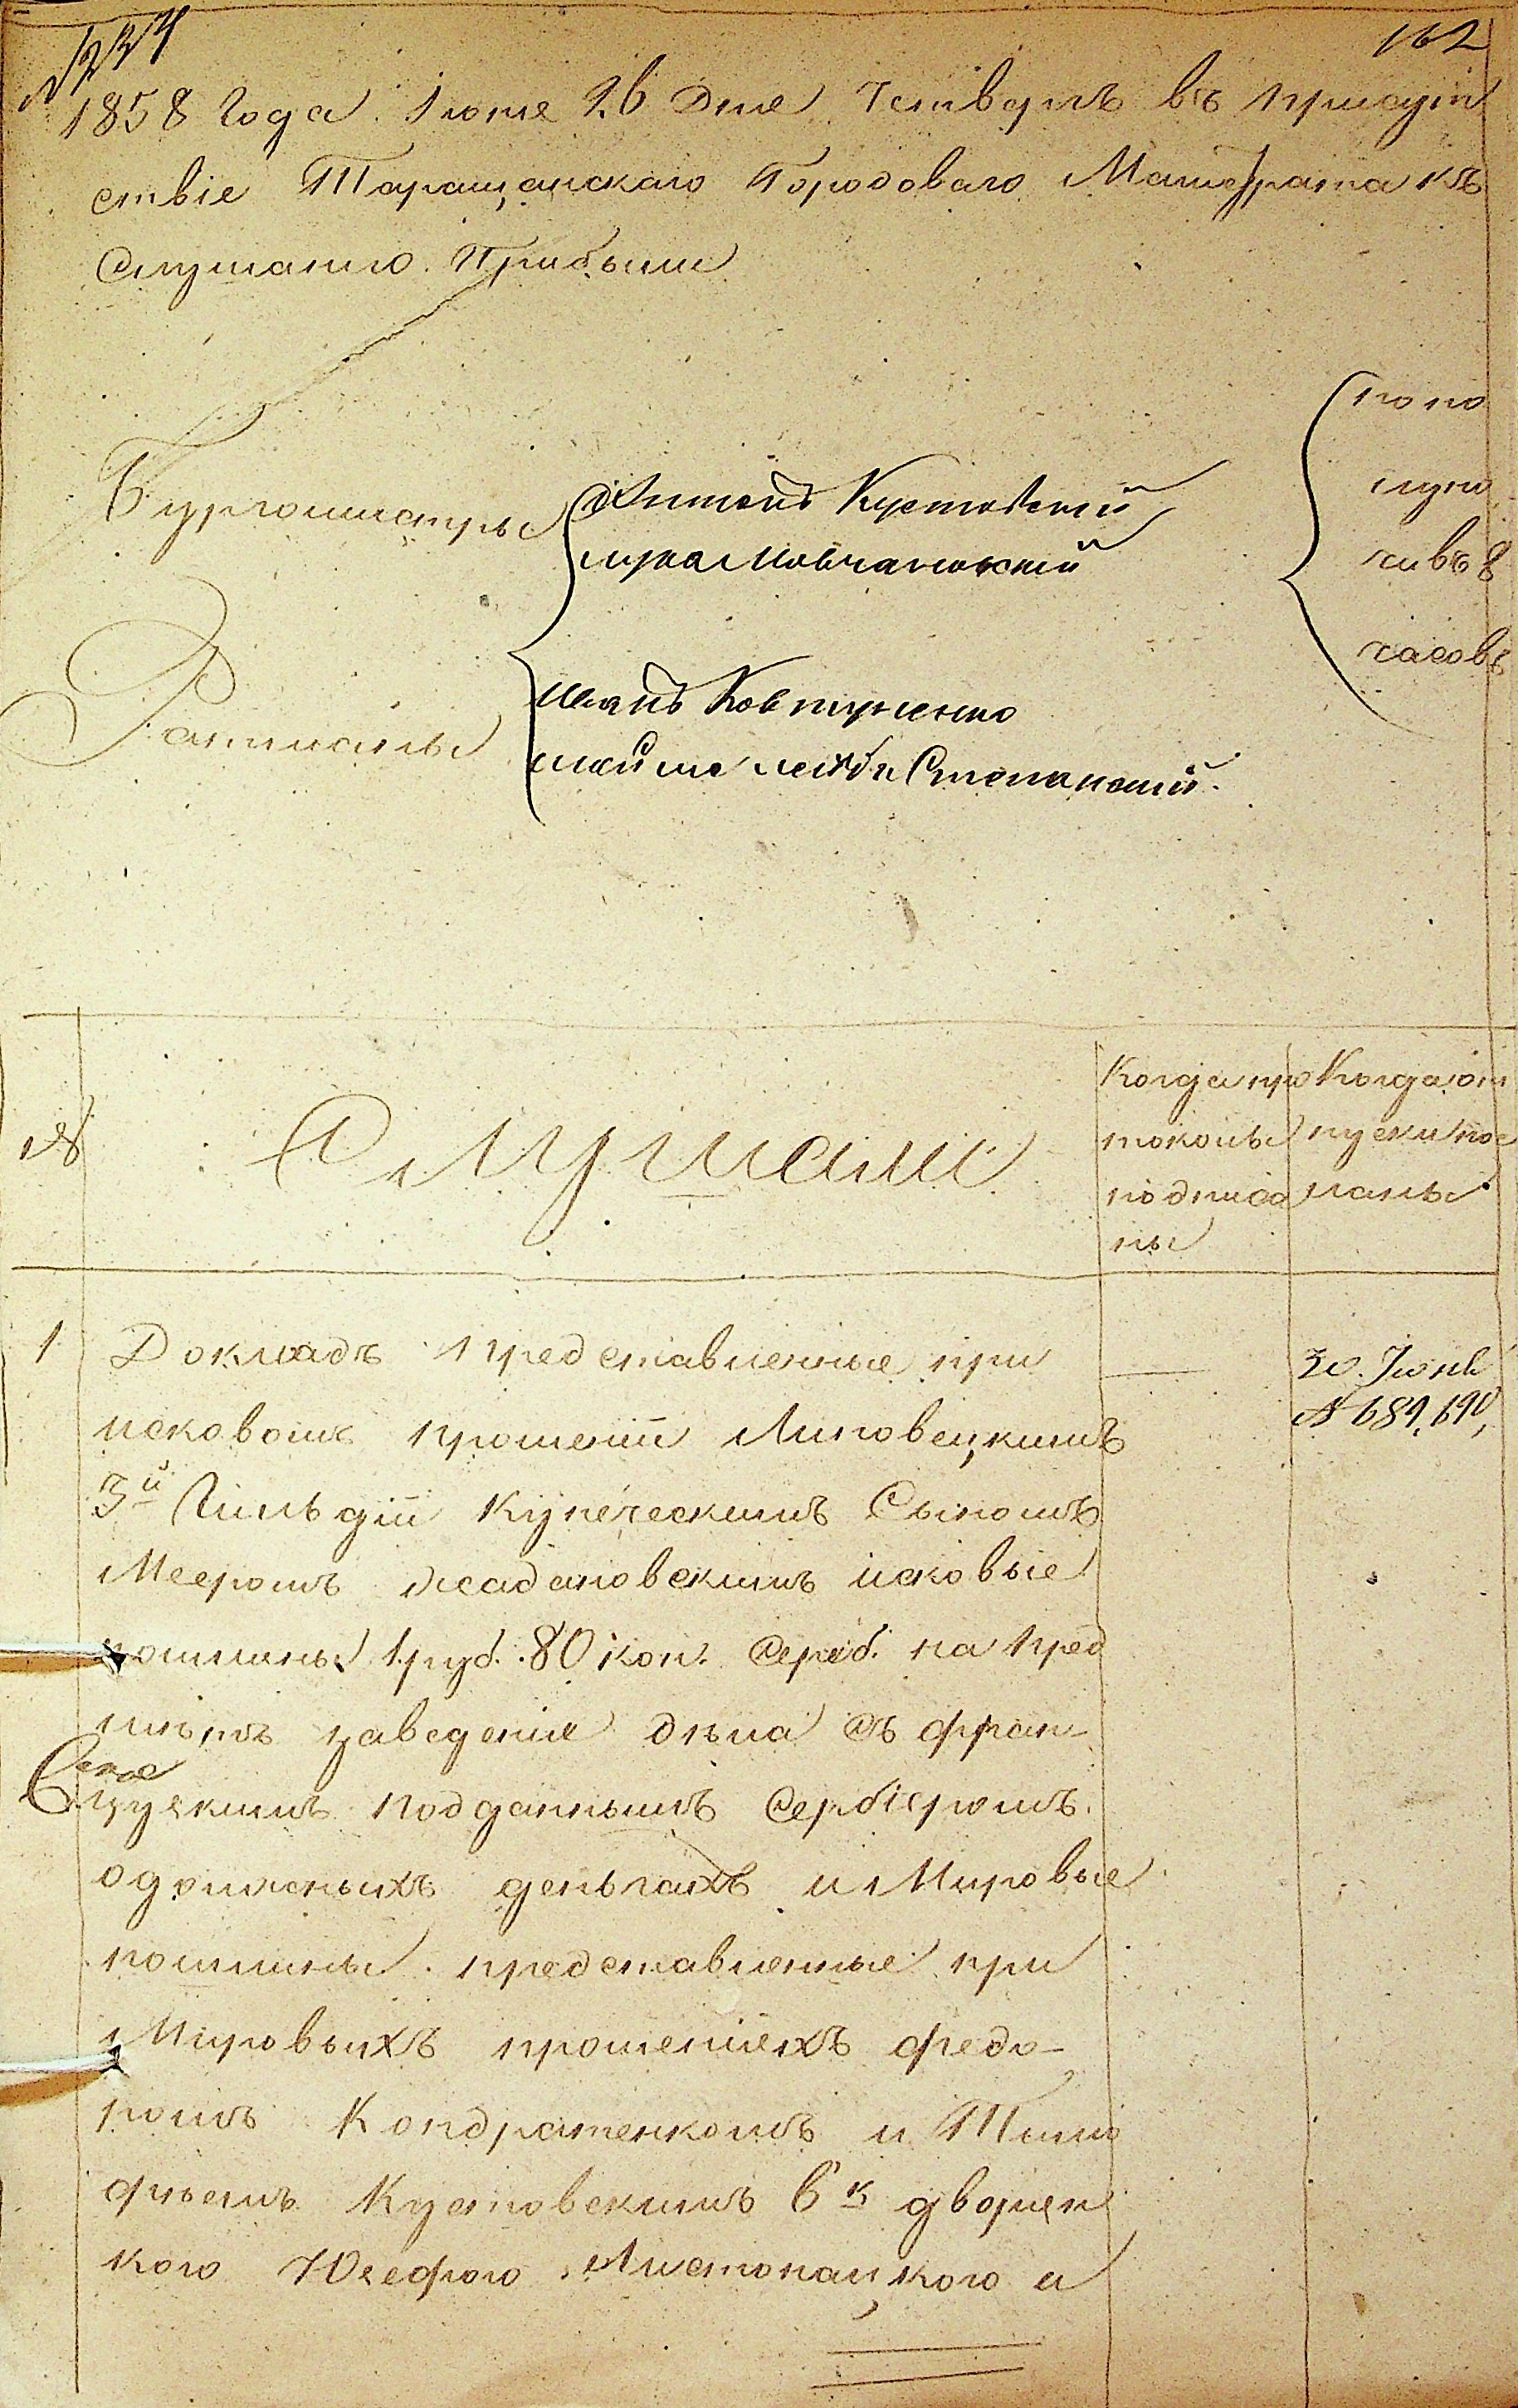 № 234
162
1858 Года Июня 26 Дня Четверть въ присут
ствіе Таращанскаго Городоваго Магистрата къ
слушанію Прибыли
Бургомистры
Антонъ Кустовскій
Лука Мовчановскій
Ратманы
Иванъ Ковтуненко
Мойше Лейба Степанскій.
по по
луно
чивъ 8
часовъ
№
Слушали
Когда про
токолы
подписа
ны
Когда от
пуски пос
ланы
1
Докладъ представленные при
исковомъ прошеніи Липовецкимъ
3й Гильдіи Купеческимъ Сыномъ
Мееромъ Жадановскимъ исковые
пошлины 1 руб. 80 коп. сереб. на пред
мѣтъ заведенія дѣла съ фран-
цузкимъ подданнымъ Сербіеромъ
одолженыхъ деньгахъ и Мировые
пошлины представленные при
Мировыхъ прошеніяхъ Федо-
ромъ Кондратенкомъ и Тимо
фѣемъ Кустовскимъ 6к дворян
кого Юзефого Листопацкого и
30. Іюня
№ 689, 690,